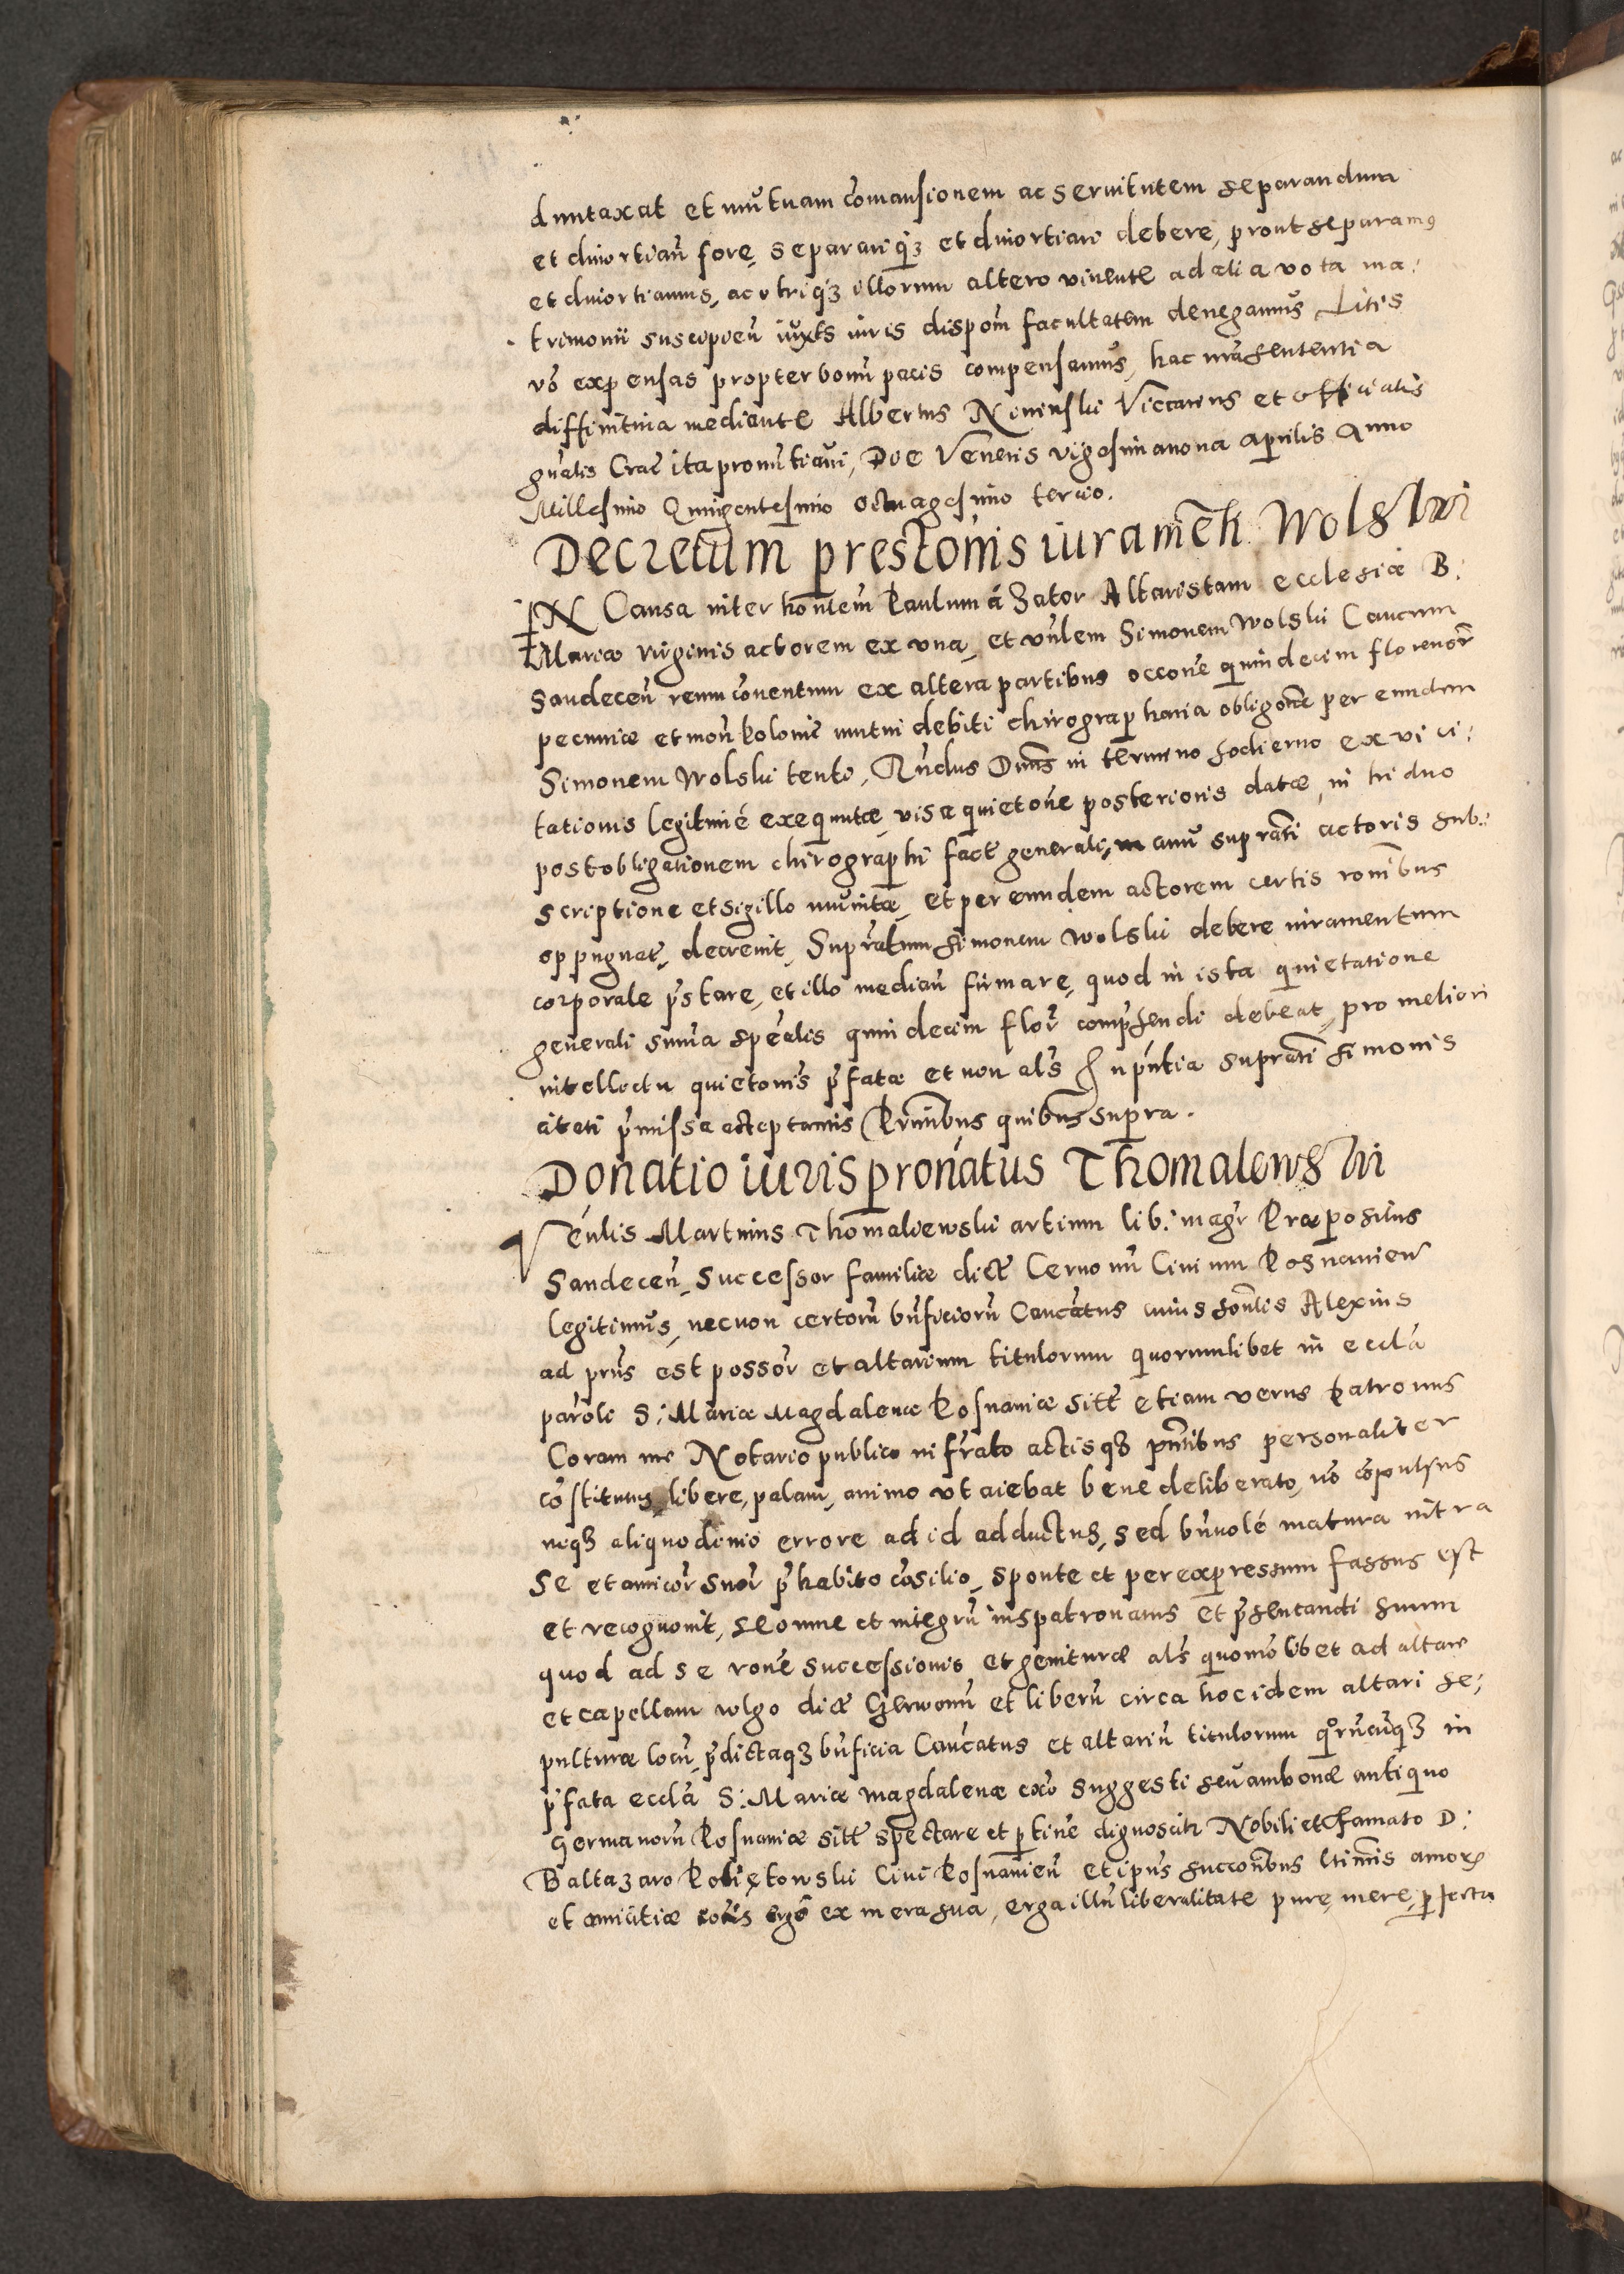 duntaxat et mutuam cōmansionem ac seruitutem separandum
et diuortiañ fore, separariq3 et diuortiari debere, prout separam9
et diuortiamus, ac vtriq3 illorum altero viuente ad alia vota ma:
trimonii suscipieñ iuxta iuris disponẽ facultatem denegamus Litis
vō expensas propter bonũ pacis compensamus, hac nr̃a sententia
diffinitiua mediante Albertus Vicarius et officialis
gñalis Crac̃ ita pronũtiaui, Die Veneris vigesima nona Aprilis Anno
Millesimo Quingentesimo octuagesimo tercio.
Decretum prestonis iuramẽti Wolski
IN Causa inter hon̄lem Paulum á Zator Altaristam ecclesiæ B:
Mariæ virginis actorem ex vna, et vñlem Simonem Wolski Canc̃um
Sandeceñ reum cōuentum ex altera partibus occōne quindecim florenor̃
pecuniæ et moñ Poloniẽ mutui debiti chirographaria obligōne per eundem
Simonem Wolski tento, Rñdus Dnus in termino hodierno ex vi ci:
tationis legitimé exequutæ, visa quietōne posterioris datæ, in triduo
post obligationem chirographi fact̃ generali, manu supratĩ actoris sub:
scriptione et sigillo munitæ, et per eundem actorem certis ronĩbus
oppugnat̃, decreuit, Supratum Simonem Wolski debere iuramentum
corporale pr̃stare, et illo median̄ firmare, quod in ista quietatione
generali sum̄a spēalis quindecim flor̃ comprehendi debeat, pro meliori
intellectu quietonis pr̃fatæ et non als̃ in pñtia supratĩ Simonis
citati pr̃missa acceptantis Pñtibus quibus supra.
Donatio iuris pronatus Thomalewski
Veñlis Martinus Thomalewski artium lib: magr̃ Præpositus
Sandeceñ, Successor familiæ dict̃ Ceruonũ Ciuium Posnanieñ
legitimus, necnon certorũ bñficiorũ Canc̃atus cuius hon̄lis Alexius
ad prñs est possor̃ et altarium titulorum quorumlibet in ecclã
parōli S: Mariæ Magdalenæ Posnaniæ sitt̃ etiam verus Patronus
Coram me Notario publico infrãto actisq3 pñtibus personaliter
cōstitutus, libere, palam, animo vt aiebat bene deliberato, nō cōpulsus
neq3 aliquo dinio errore ad id adductus, sed bñuolé matura intra
se et amicor̃ suor̃ pr̃habito cōsilio, sponte et per expressum fassus est
et recognouit, se omne et integrũ ius patronatus et pr̃sentandi suum
quod ad se ronē successionis et genituræ als̃ quomōlibet ad altare
et capellam vulgo dict̃ Cerwonũ et liberũ circa hoc idem altari se:
pulturæ locũ, pr̃dictaq3 bñficia Canc̃atus et altariũ titulorum quorũcũq3 in
pr̃fata ecclã S: Mariæ Magdalenæ suggesti seu ambonæ antiquo
Germanorũ Posnaniæ sitt̃ spectare et ptinẽ dignoscitr Nobili et Famato D:
Baltazaro Ciui Posnanieñ et ipus̃ succorĩbus ltimis amore
et amicitiæ ex mera sua, erga illũ liberalitate pure, mere, pfecta